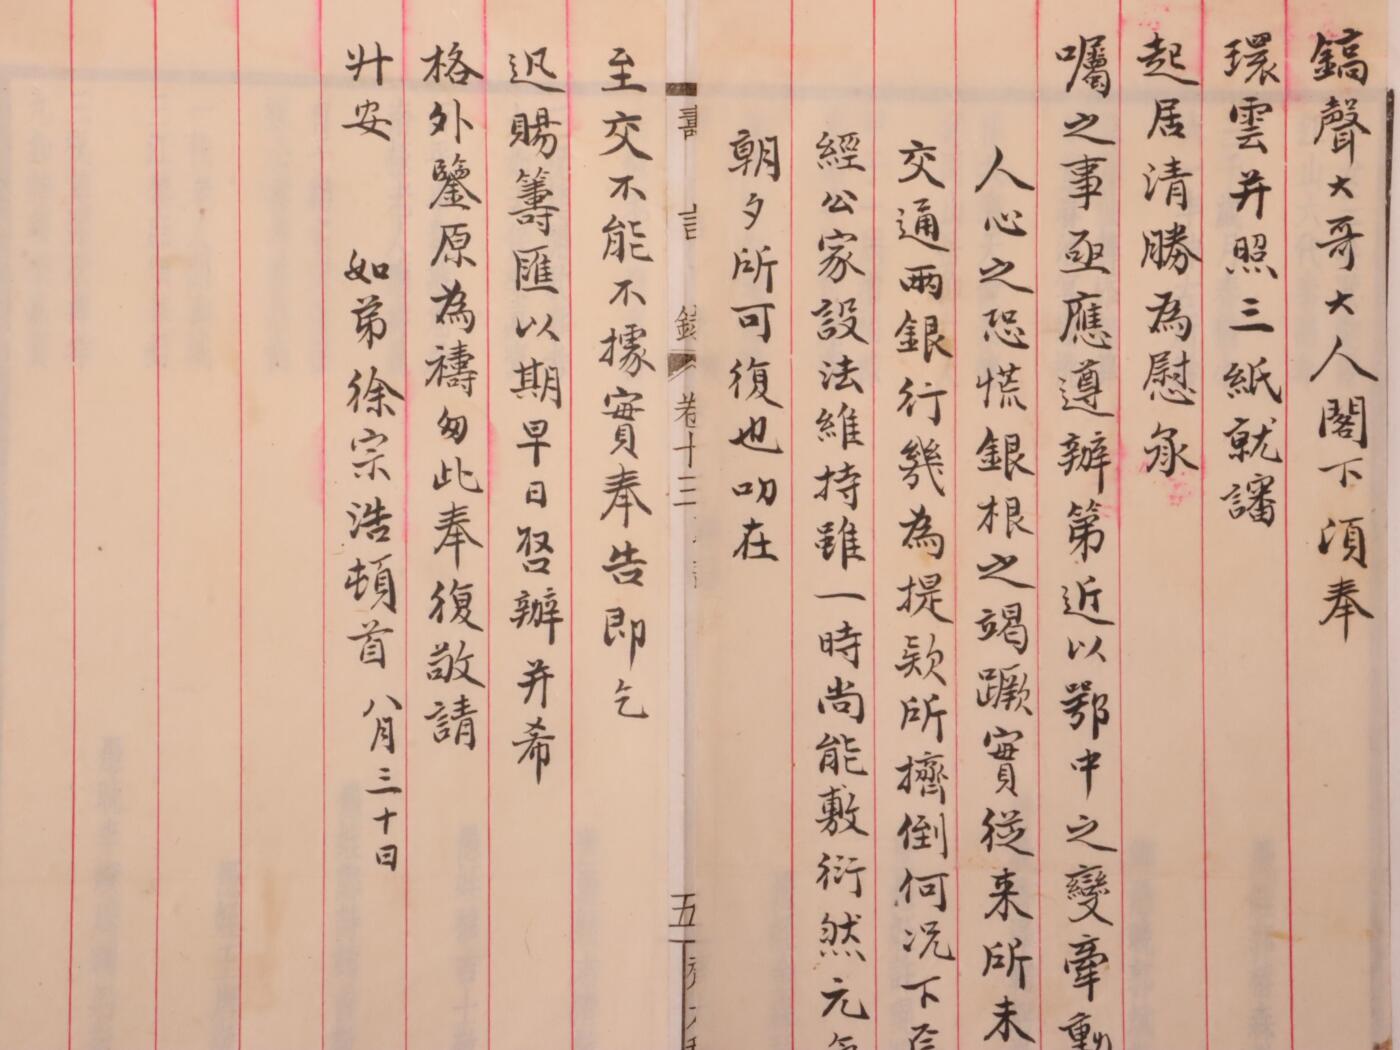 鎬聲大哥大人閣下頃奉
環雲并照三紙就讅
起居清勝為慰承
囑之事亟應遵辦第近以鄂中之變牽動
人心之恐慌銀根之竭蹶實從来所未
交通兩銀行幾為提款所擠倒何况下
經公家設法維持雖一時尚能敷衍然元
朝夕所可復也叨在
至交不能不據實奉告即乞
迅賜籌匯以期早日啓辦并希
格外鑒原為禱匆此奉復敬請
升安 如弟徐宗浩頓首 八月三十日
壽言錄 卷十三
五